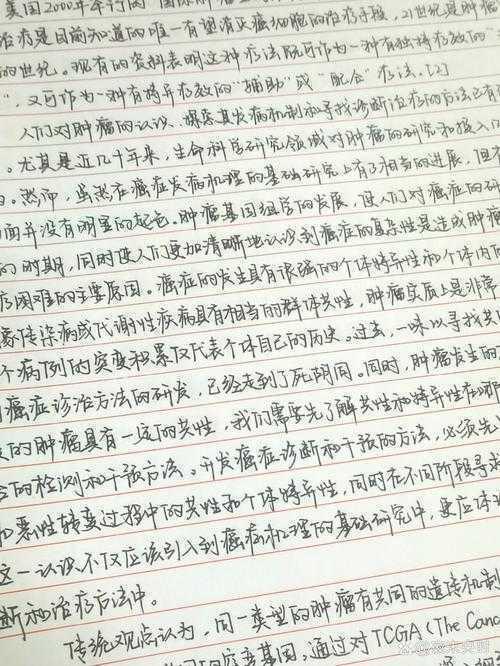 美国2000年举行的
治疗是目前知道的唯一有望消灭癌细胞的治疗手段，21世纪是肿瘤
的世纪。现有的资料表明这种疗法既可作为一种有独特疗效的
"，又可作为一种有特异疗效的"辅助"或"配合"疗法。[2]
人们对肿瘤的认识、探索其发病机制和寻找诊断治疗的方法已有
。尤其是近几十年来，生命科学研究领域对肿瘤的研究和投入
。然而，虽然在癌症发病机理的基础研究上有了相当的进展，但
面并没有明显的起色。肿瘤基因组学的发展，使人们对癌症的研
的时期，同时使人们更加清晰地认识到癌症的复杂性是造成肿瘤
疗困难的主要原因。癌症的发生具有很强的个体特异性和个体内
像传染病或代谢性疾病具有相当的群体共性，肿瘤实质上是非常
个病例的突变积累仅代表个体自己的历史。过去，一味以寻找共
癌症诊治方法的研发，已经走到了死阴同。同时，肿瘤发生的
的肿瘤具有一定的共性，我们需要先了解共性和特异性在哪
的检测和干预方法。开发癌症诊断和干预的方法，必须先
恶性转变过程中的共性和个体特异性，同时在不同阶段寻找
这一认识不仅应该引入到癌症机理的基础研究中，更应体
断和治疗方法中。
传统观点认为，同一类型的肿瘤有共同的遗传机制
的突变基因。通过对TCGA(The Canc